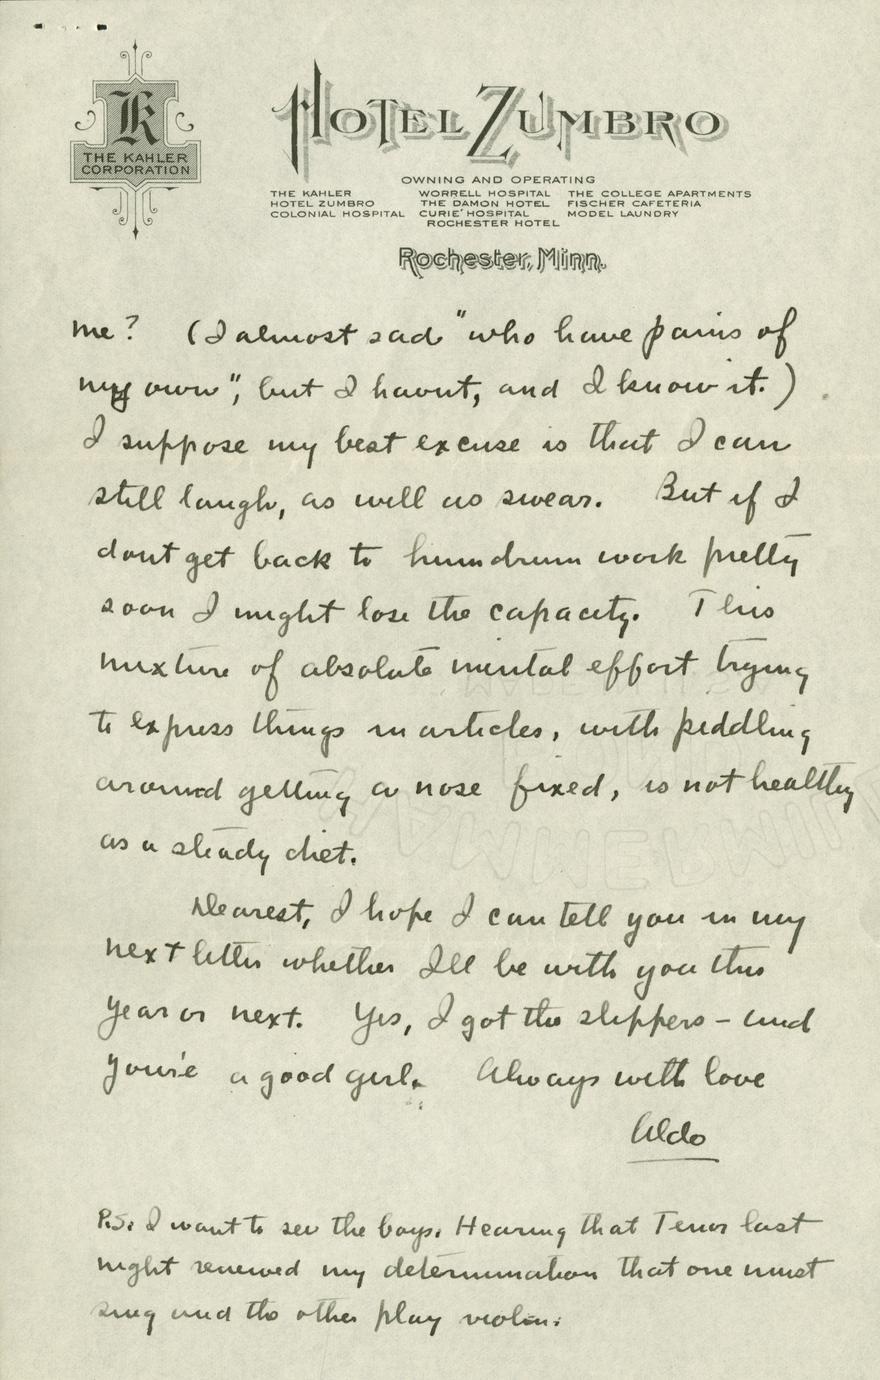 K
THE KAHLER
CORPORATION
HOTEL ZUMBRO
OWNING AND OPERATING
THE KAHLER WORRELL HOSPITAL THE COLLEGE APARTMENTS
HOTEL ZUMBRO THE DAMON HOTEL FISCHER CAFETERIA
COLONIAL HOSPITAL CURIE HOSPITAL MODEL LAUNDRY
ROCHESTER HOTEL
Rochester, Minn.
me? (I almost said "who have pains of
my own", but I havnt, and I know it.)
I suppose my best excuse is that I can
still laugh, as well as swear. But if I
dont get back to humdrum work pretty
soon I might lose the capacity. This
mixture of absolute mental effort trying
to express things in articles, with piddling
around getting a nose fixed, is not healthy
as a steady diet.
Dearest, I hope I can tell you in my
next letter whether Ill be with you this
year or next. Yes, I got the slippers – and
you're a good girl. Always with love
Aldo
P.S. I want to see the boys. Hearing that Tenor last
night renewed my determination that one must
sing and the other play violin.